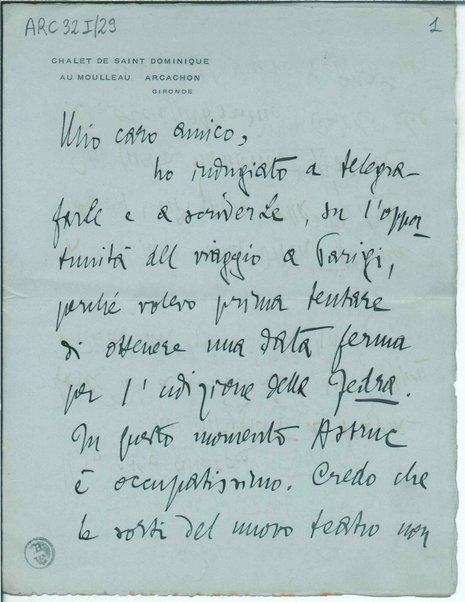 ARC 32 I/29
1
CHALET DE SAINT DOMINIQUE
AU MOULLEAU ARCACHON
GIRONDE
Mio caro amico,
ho indugiato a telegra-
farle e a scriverLe, su l'oppor-
tunità del viaggio a Parigi,
perché volevo prima tentare
di ottenere una data ferma
per l'udizione della Fedra.
In questo momento Astruc
è occupatissimo. Credo che
le sorti del nuovo teatro non